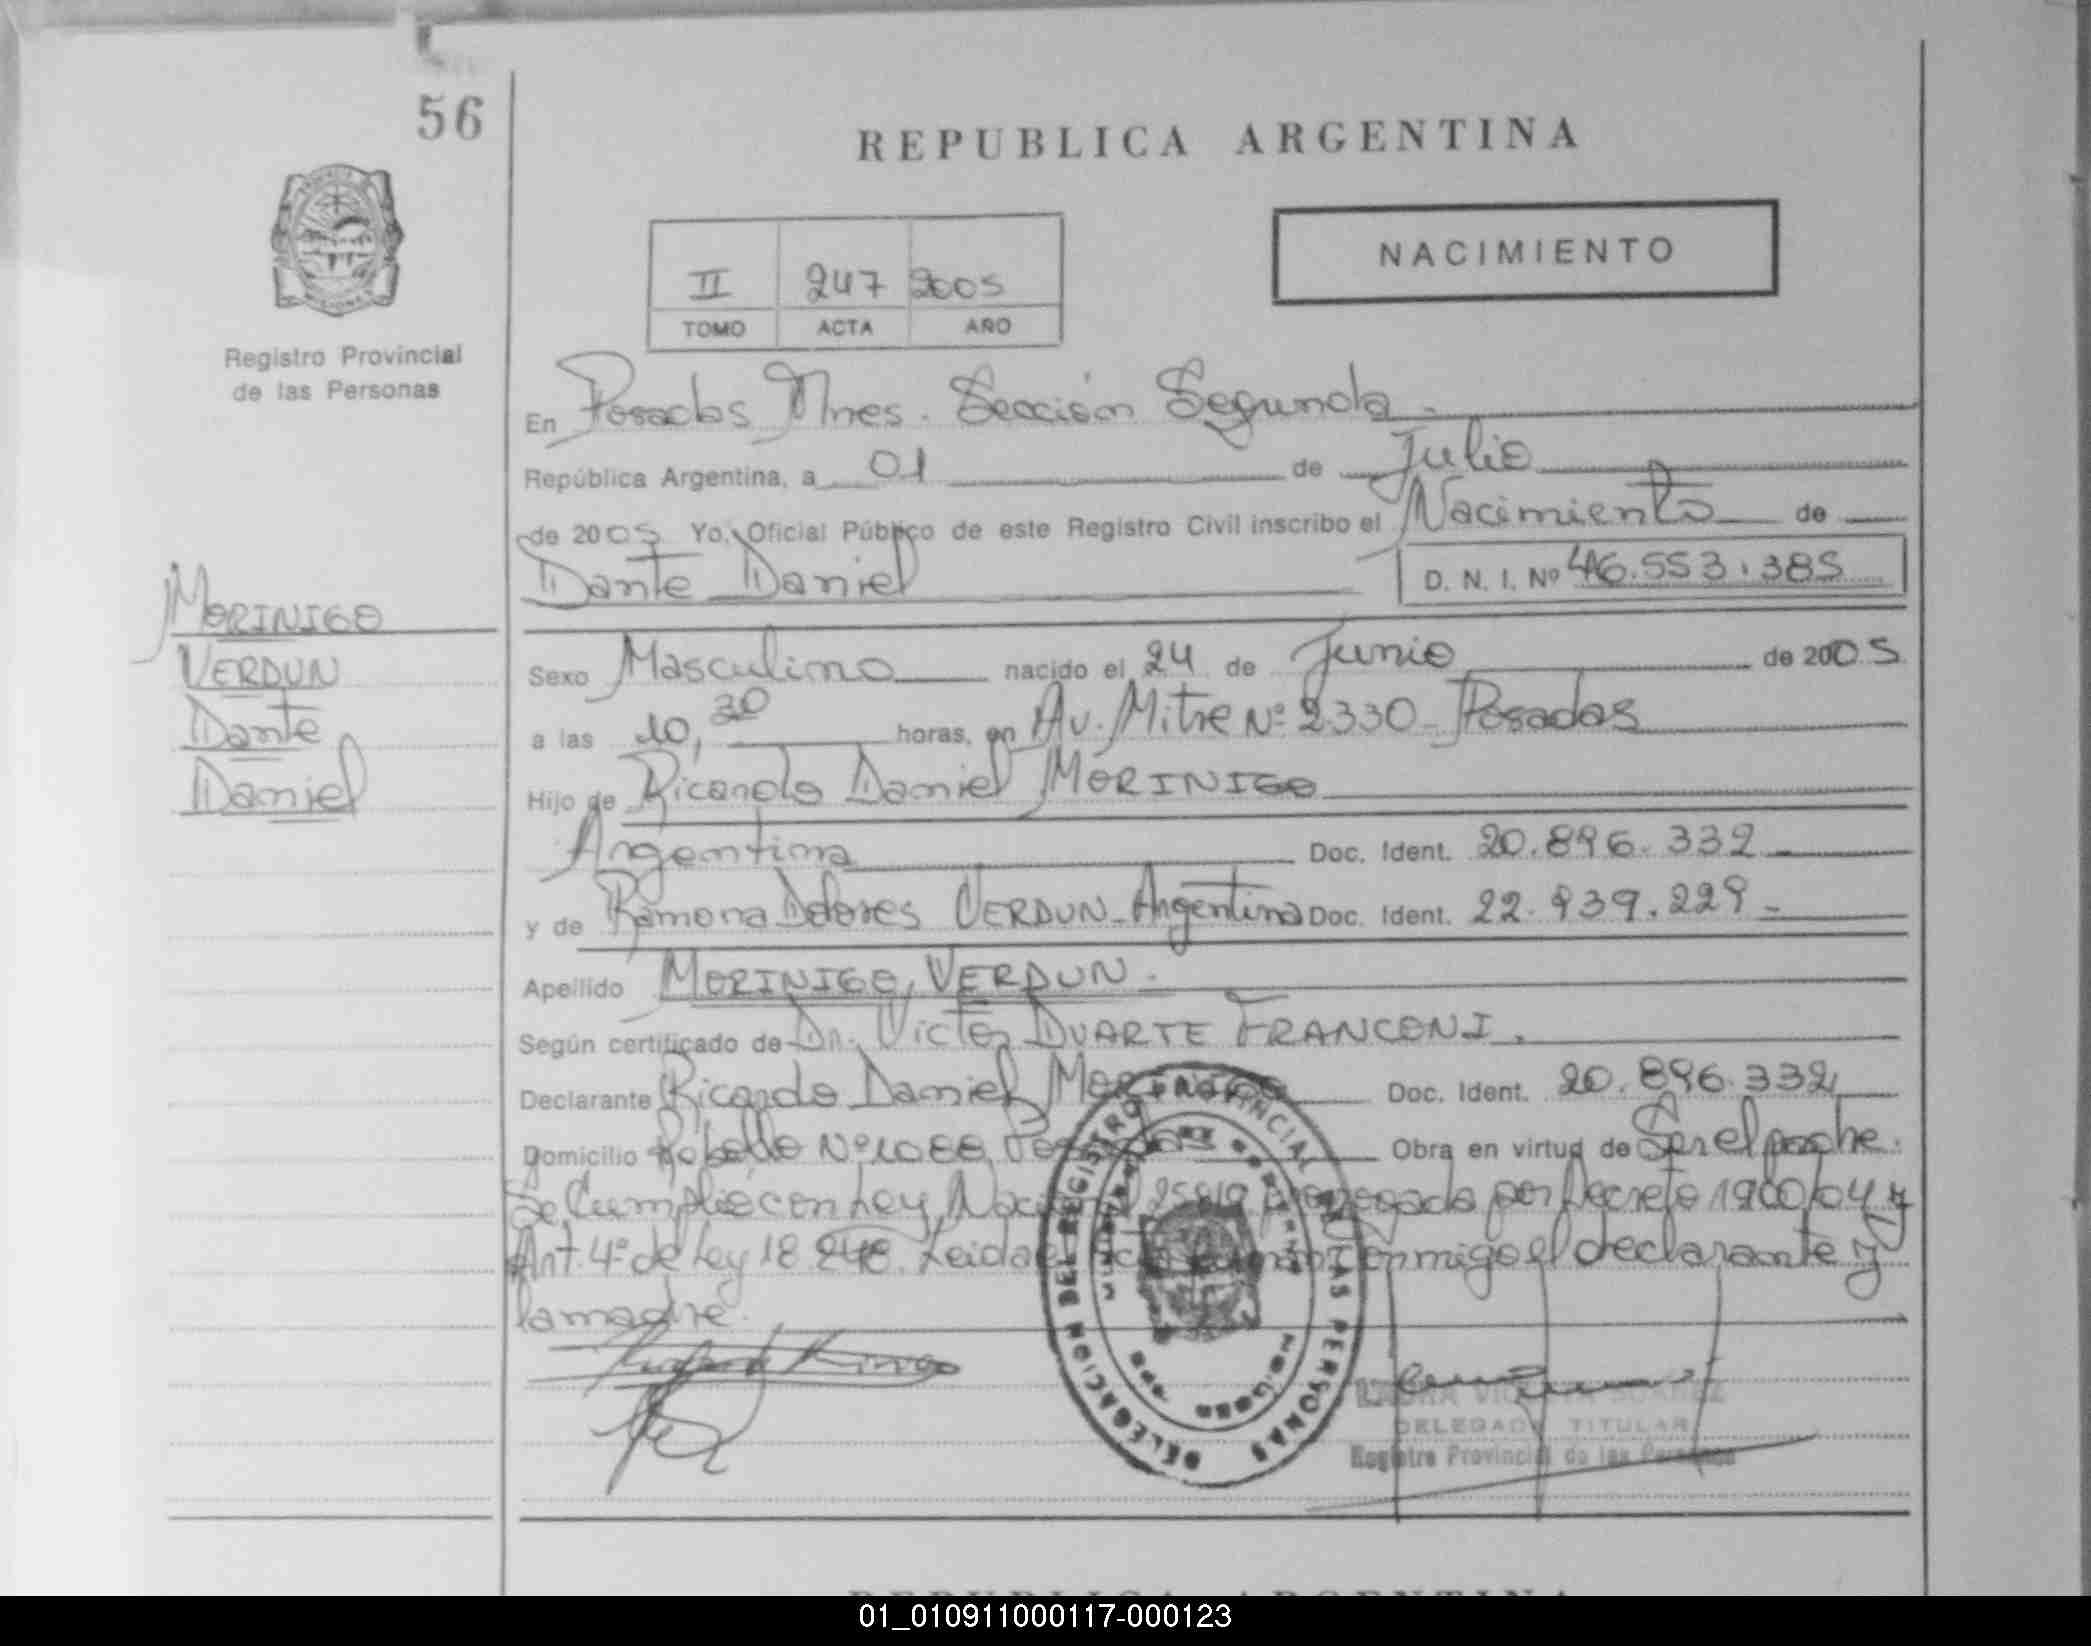 56
REPUBLICA ARGENTINA
NACIMIENTO
II 247 2005
TOMO ACTA AÑO
Registro Provincial
de las Personas
En Posadas Mnes. Sección Segunda.
República Argentina, a 01 de Julio
de 2005 Yo, Oficial Público de este Registro Civil inscribo el Nacimiento de
Dante Daniel D. N. I. Nº 46.553.385
MORINIGO
VERDUN
Dante
Daniel
Sexo Masculino nacido el 24 de Junio de 2005
a las 10,30 horas, en Av. Mitre Nº 2330 - Posadas
Hijo de Ricardo Daniel MORINIGO
Argentina Doc. Ident. 20.896.332
y de Ramona Dolores VERDUN - Argentina Doc. Ident. 22.939.229 -
Apellido MORINIGO, VERDUN.
Según certificado de Dr. Victor DUARTE FRANCONI.
Declarante Ricardo Daniel MORINIGO Doc. Ident. 20.896.332
Domicilio Nº Obra en virtud de Ser el padre.
Se Cumplió con Ley Nacional 25819 prorrogada por Decreto 1900/04 y
Art. 4º de Ley 18.248. Leida el acta conmigo el declarante y
la madre.
DELEGACION DEL REGISTRO PROVINCIAL DE LAS PERSONAS
DELEGADA TITULAR
Registro Provincial de las Personas
REPUBLICA ARGENTINA
01_010911000117-000123